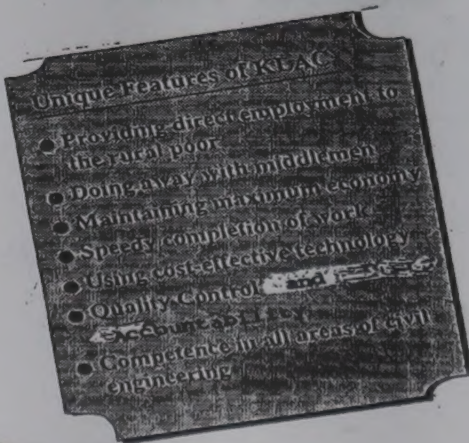 Unique Features of KLAC
● Providing direct employment to
the rural poor
● Doing away with middlemen
● Maintaining maximum economy
● Speedy completion of work
● Using cost-effective technology
● Quality Control and
Accountability
● Competence in all areas of civil
engineering